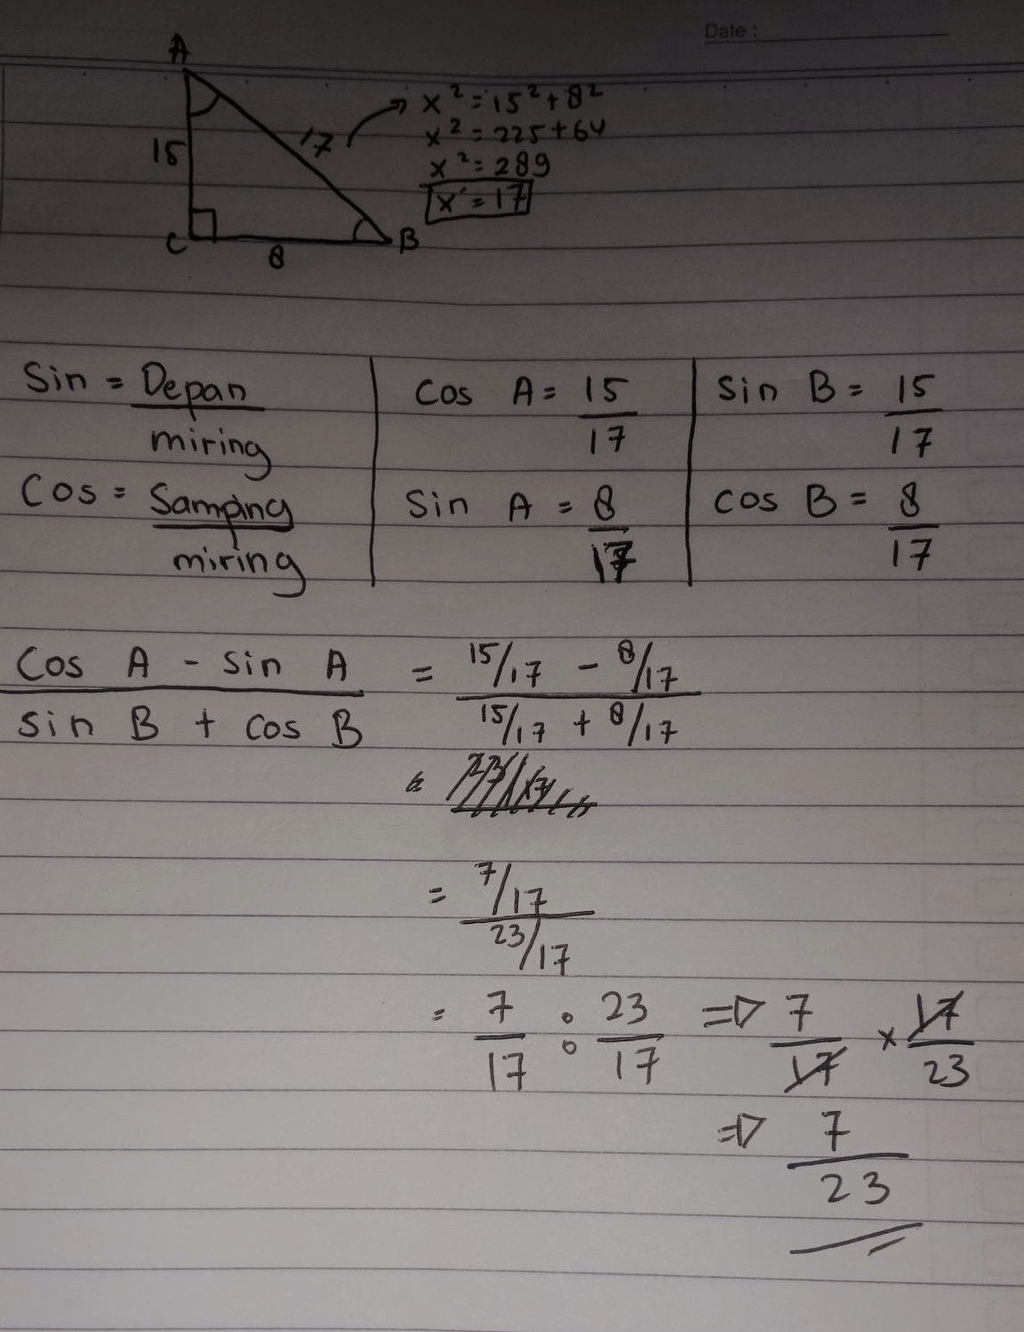 Date :
A
15
17
C
8
B
x² = 15² + 8²
x² = 225 + 64
x² = 289
x = 17
Sin = Depan / miring
Cos = Samping / miring
Cos A = 15/17
Sin A = 8/17
Sin B = 15/17
Cos B = 8/17
Cos A - Sin A / Sin B + Cos B = 15/17 - 8/17 / 15/17 + 8/17
= 7/17 / 23/17
= 7/17 : 23/17 => 7/17 x 17/23
=> 7/23